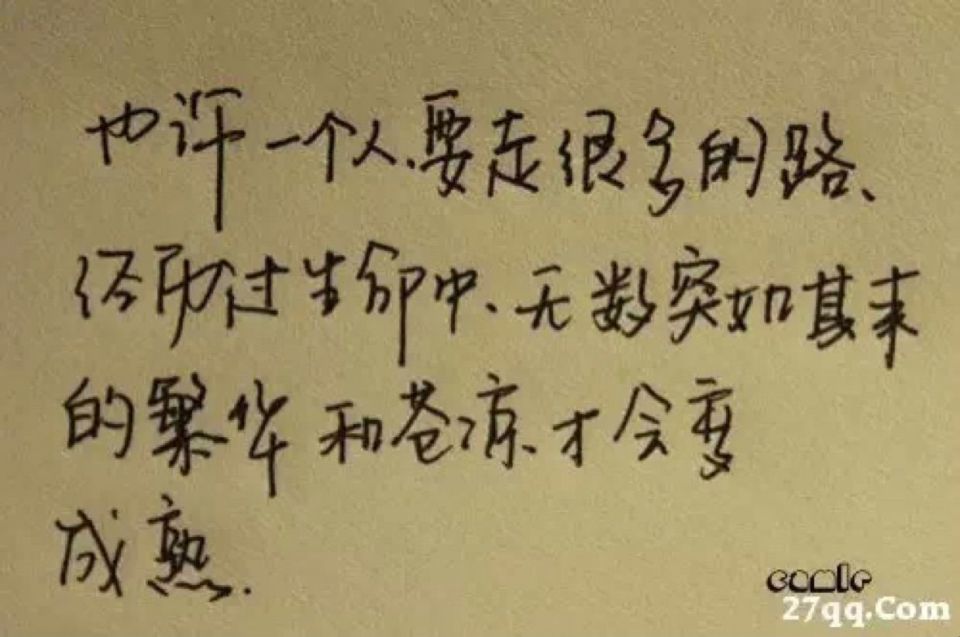 也许一个人、要走很多的路、
经历过生命中、无数突如其来
的繁华和苍凉.才会变
成熟.
comic
27qq.Com